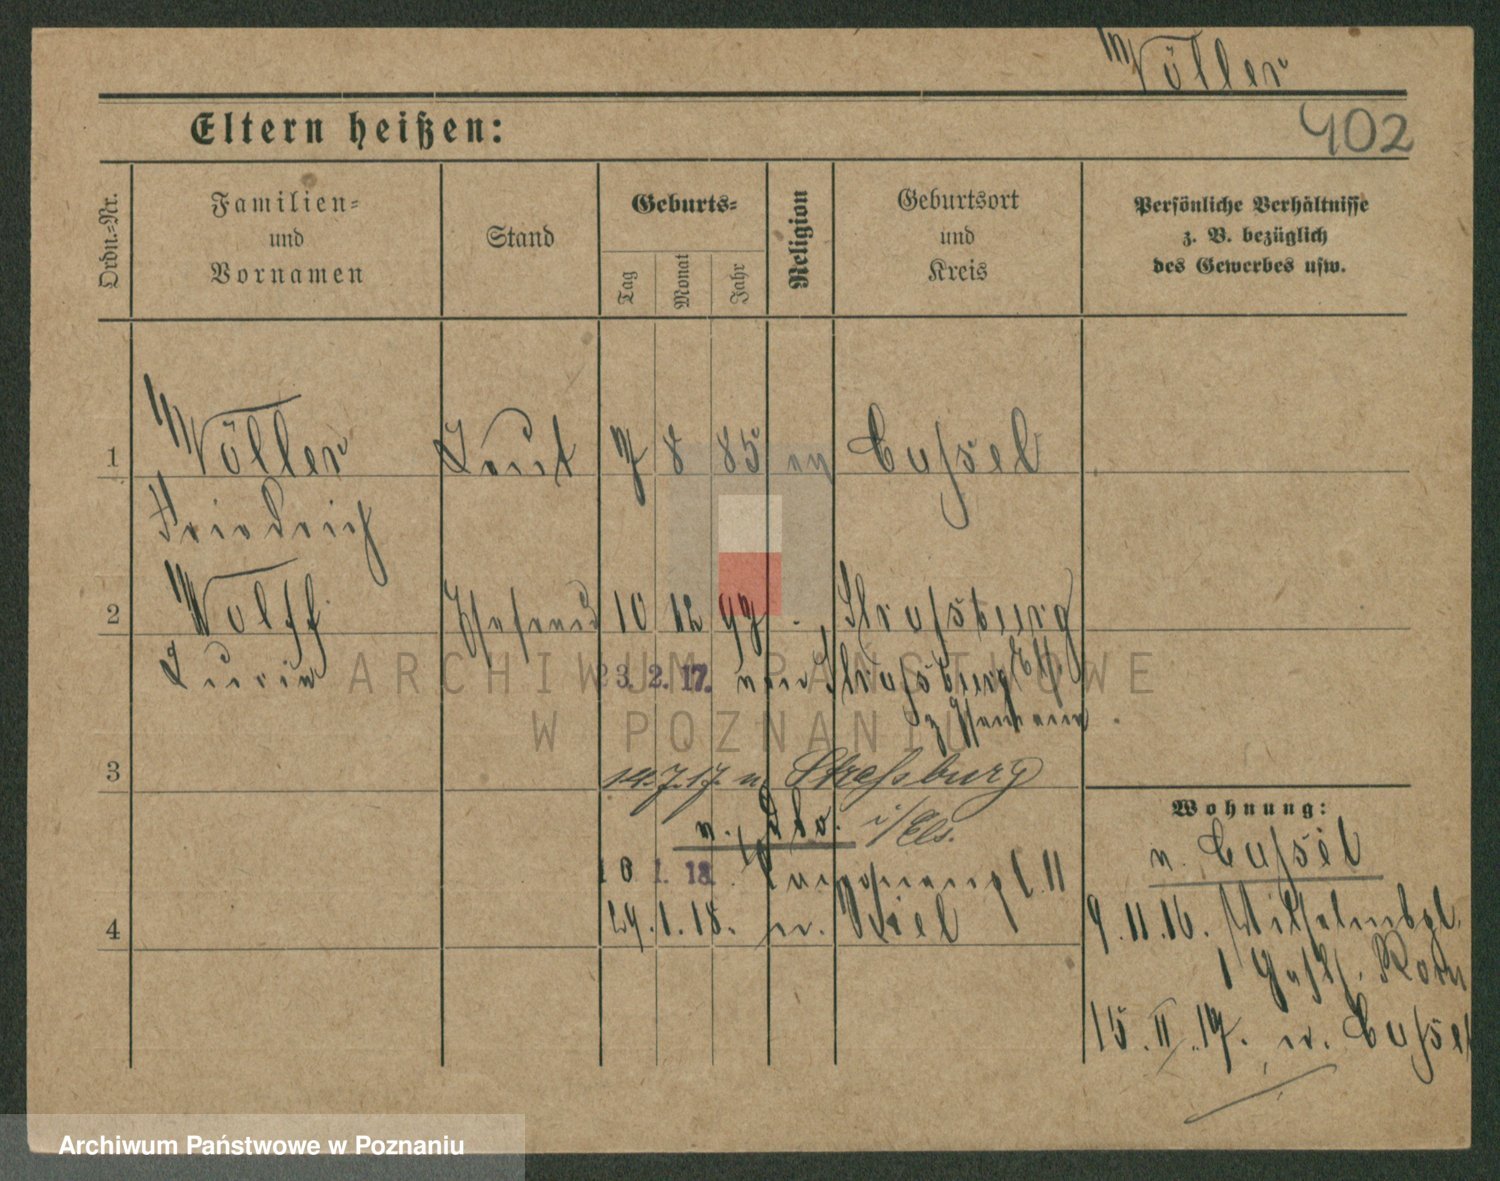 Völler
402
Eltern heißen:
Ordn.-Nr.
Familien-
und
Vornamen
Stand
Geburts-
Tag
Monat
Jahr
Religion
Geburtsort
und
Kreis
Persönliche Verhältnisse
z. B. bezüglich
des Gewerbes usw.
1 Völler Leut 7 8 85 ev Cassel
Friedrich
2 Wolff Ehefrau 10 12 97 Strassburg
Lucie 23. 2. 17. von Strassburg E/
ARCHIWUM PAŃSTWOWE
W POZNANIU
3 14.7.17. n. Strassburg
i/Els.
Wohnung:
n. Cassel
10 1. 18. II
4 24.1.18. n. Kiel
9.11.16.
1
15.II.17. n. Cassel
Archiwum Państwowe w Poznaniu